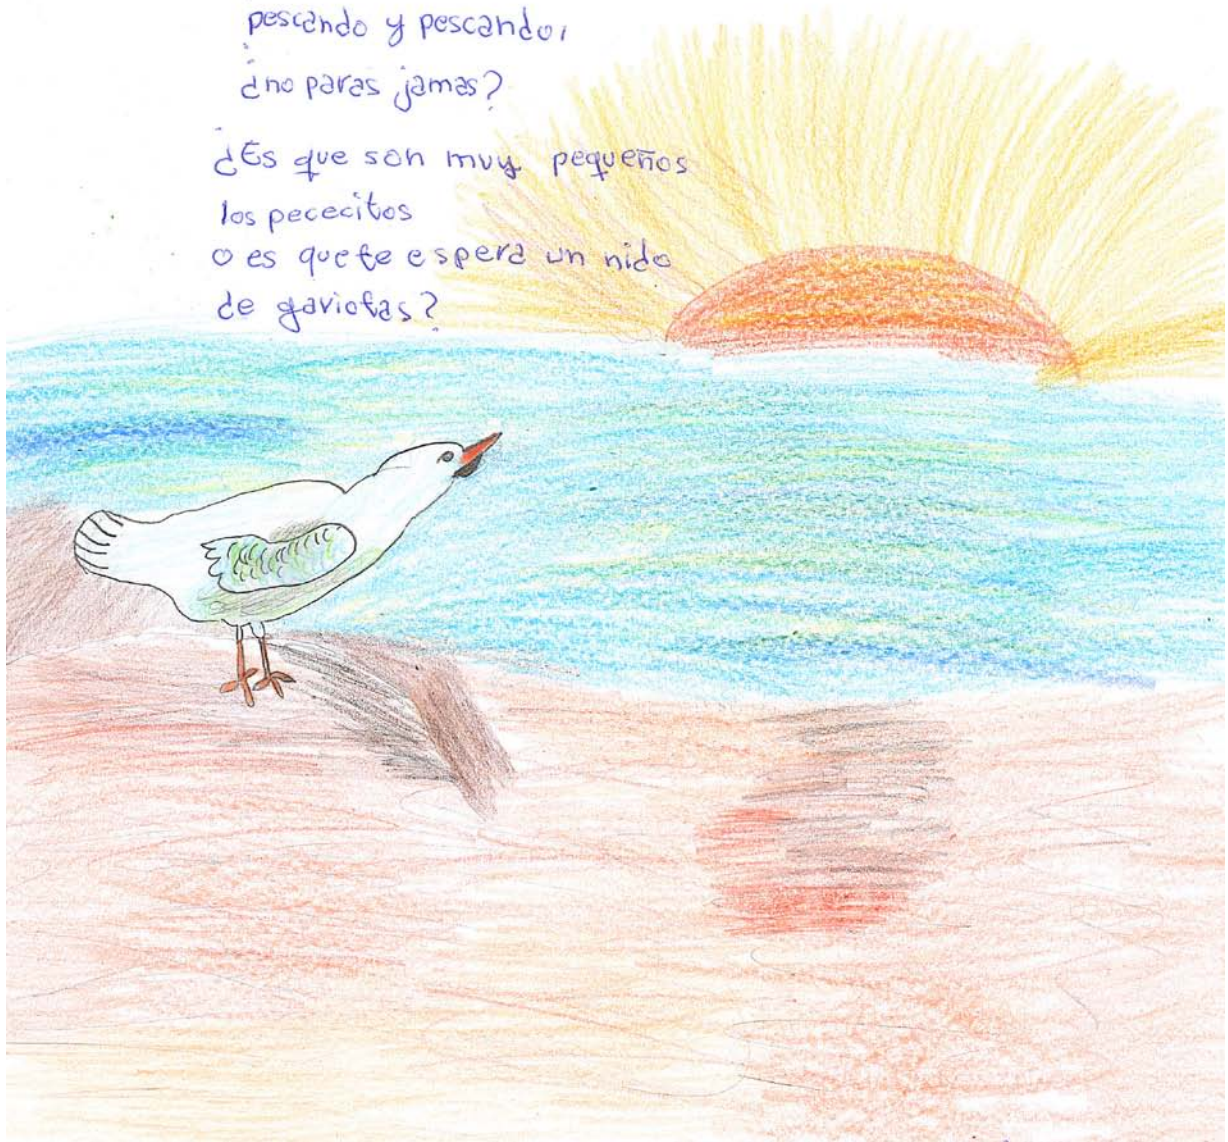 pescando y pescando,
¿no paras jamas?
¿Es que son muy pequeños
los pececitos
o es que te espera un nido
de gaviotas?